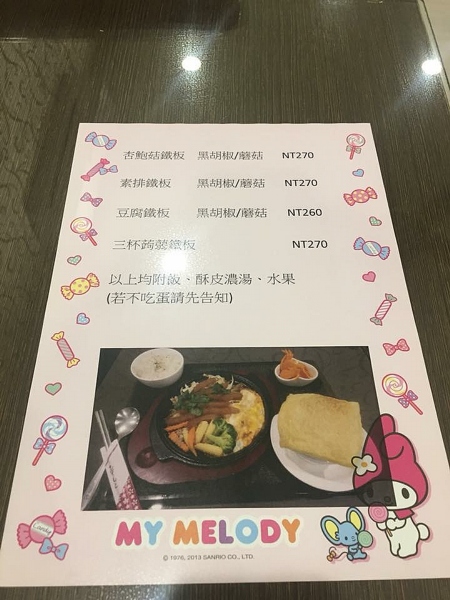 杏鮑菇鐵板 黑胡椒/蘑菇 NT270
素排鐵板 黑胡椒/蘑菇 NT270
豆腐鐵板 黑胡椒/蘑菇 NT260
三杯蒟蒻鐵板 NT270
以上均附飯、酥皮濃湯、水果
(若不吃蛋請先告知)
MY MELODY
© 1976, 2013 SANRIO CO., LTD.